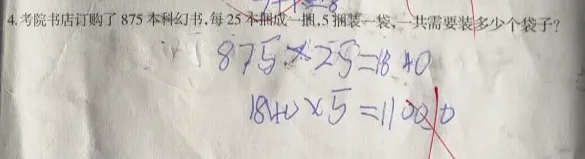 4.考院书店订购了875本科幻书,每25本捆成一捆,5捆装一袋,一共需要装多少个袋子?
875×25=1840
1840×5=11000